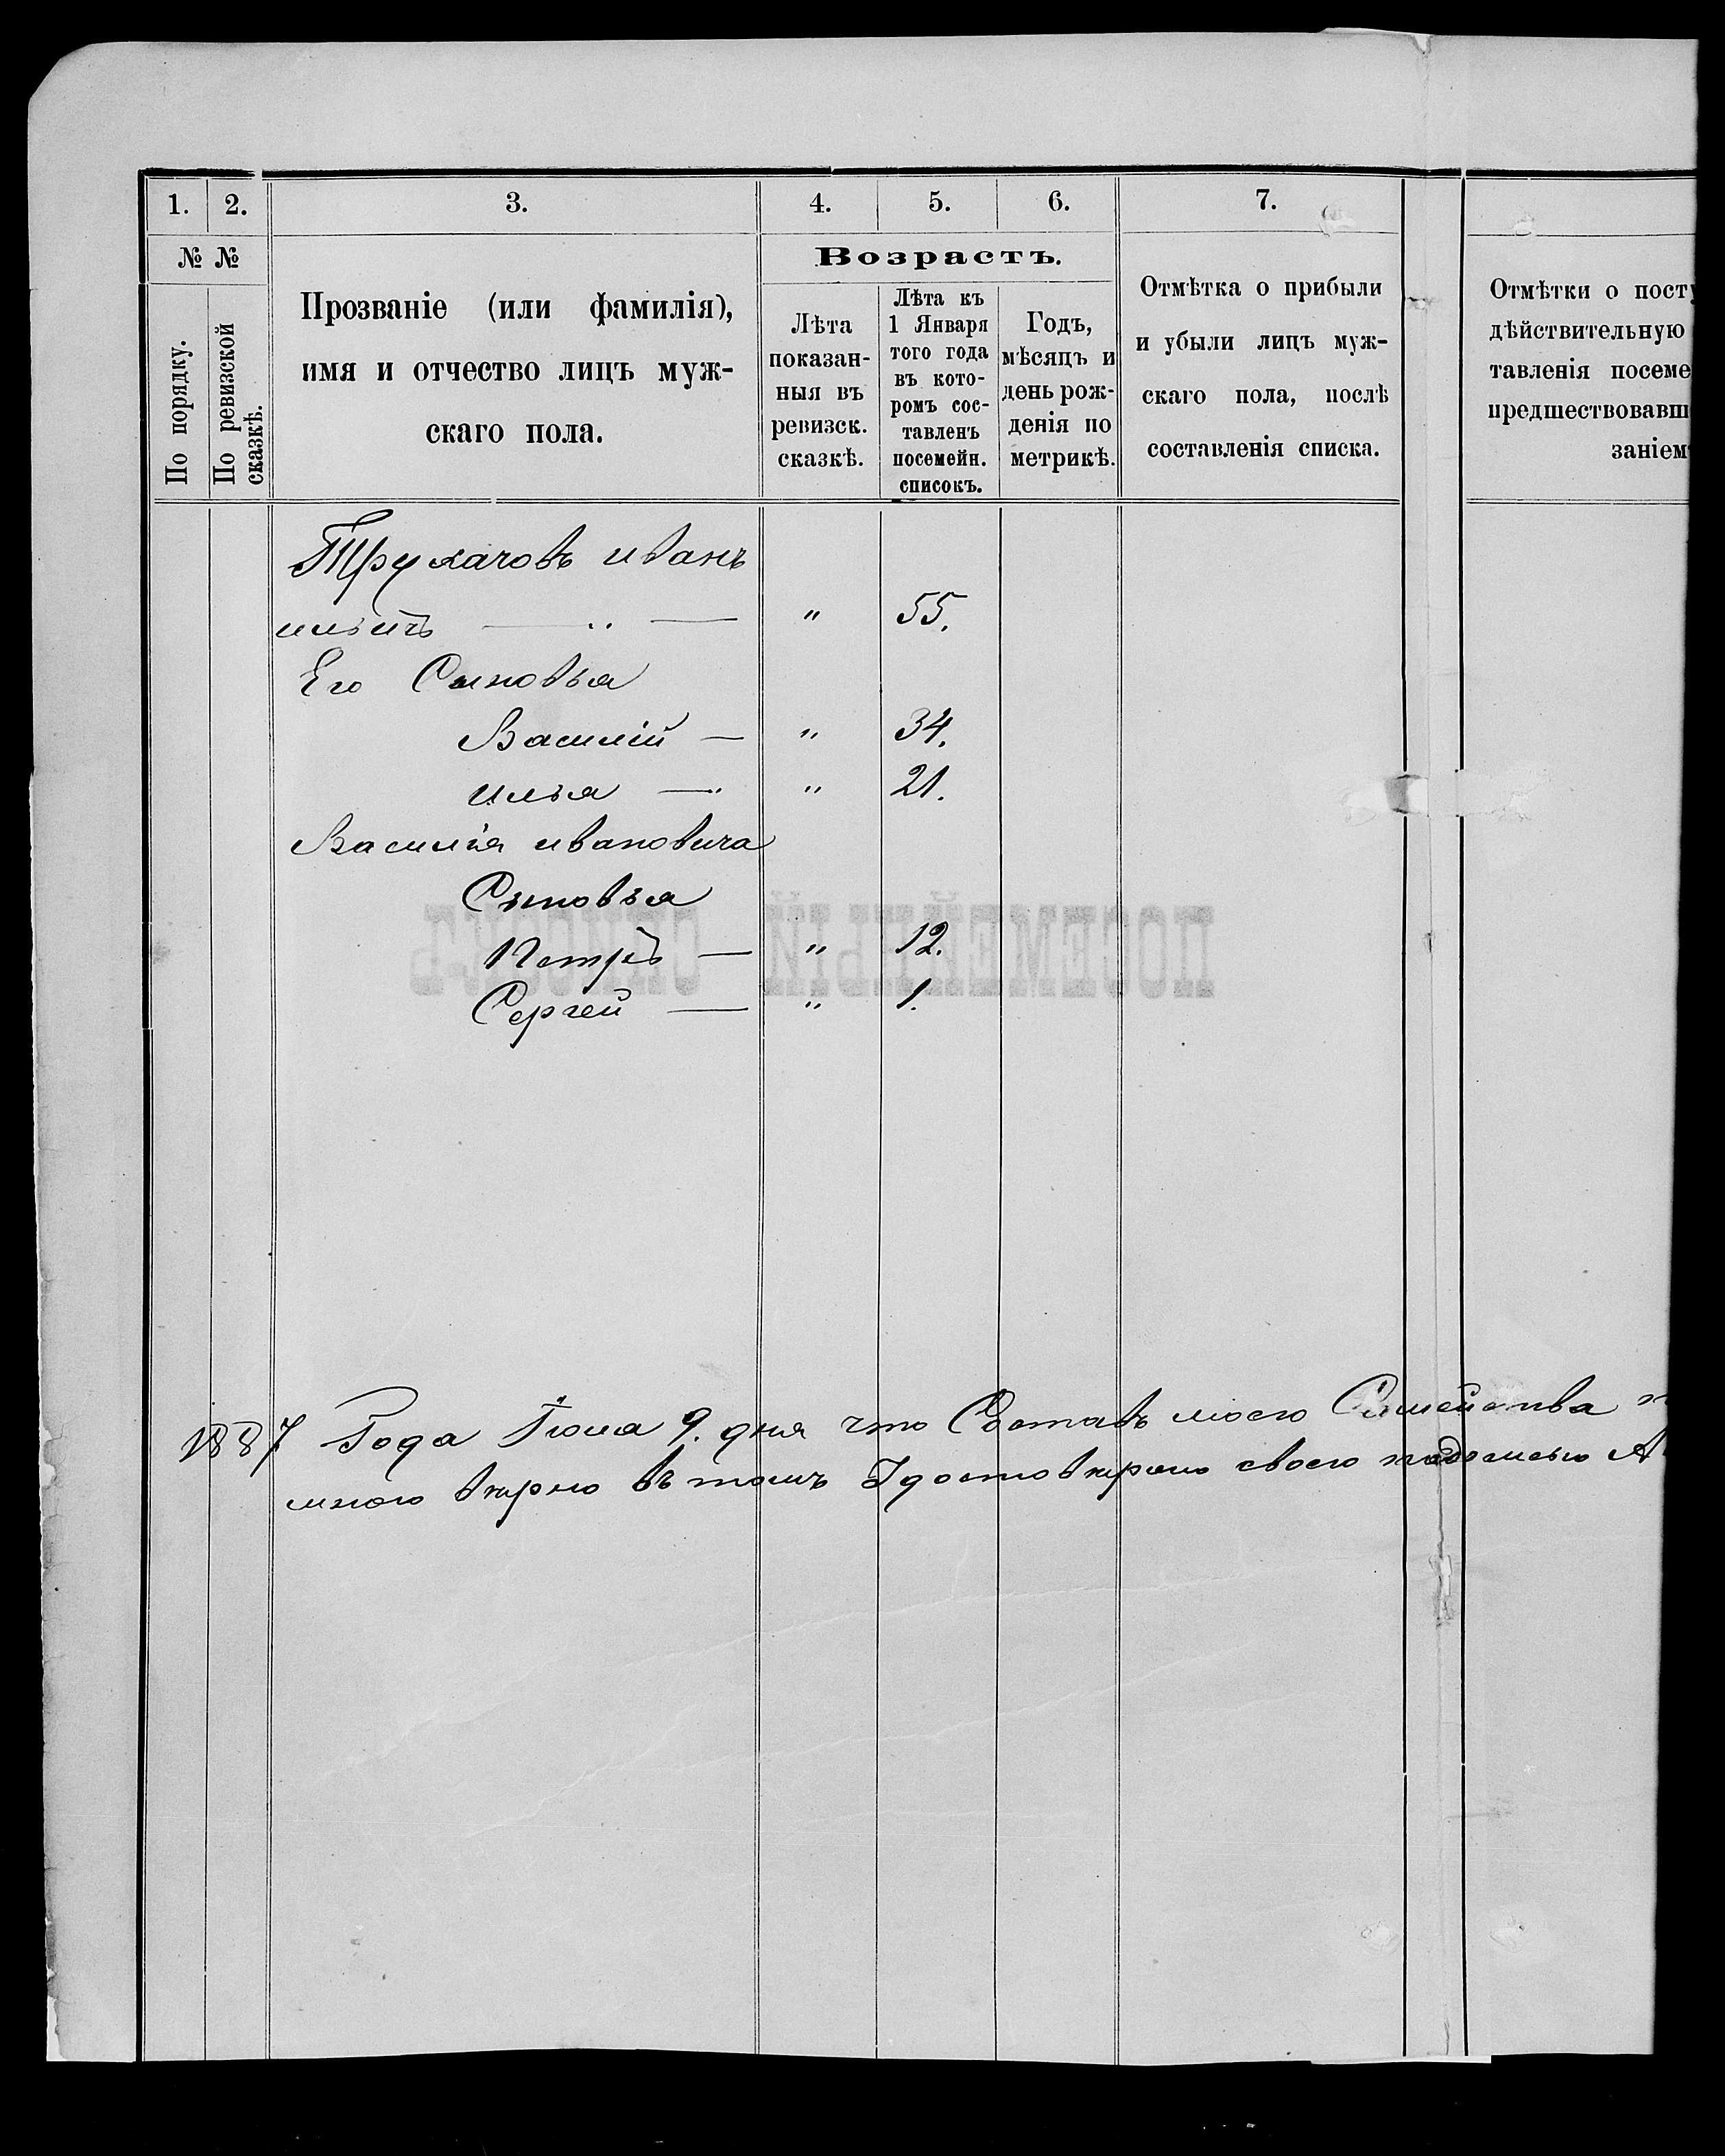 1.
2.
3.
4.
5.
6.
7.
№ №
По порядку.
По ревизской
сказкѣ.
Прозваніе (или фамилія),
имя и отчество лицъ муж-
скаго пола.
Возрастъ.
Лѣта
показан-
ныя въ
ревизск.
сказкѣ.
Лѣта къ
1 Января
того года
въ кото-
ромъ сос-
тавленъ
посемейн.
списокъ.
Годъ,
мѣсяцъ и
день рож-
денія по
метрикѣ.
Отмѣтка о прибыли
и убыли лицъ муж-
скаго пола, послѣ
составленія списка.
Отмѣтки о посту
дѣйствительную
тавленія посеме
предшествовавш
заніем
Трухачовъ иванъ
ильичъ — " — " 55.
Его Сыновья
Василій — " 34.
илья — " 21.
Василія ивановича
Сыновья
Петръ — " 12.
Сергей — " 1.
ПОСЕМЕЙНЫЙ СПИСОКЪ
1887 Года Іюля 9. дня что Составъ моего Семейства
мною вѣрно въ томъ
своего